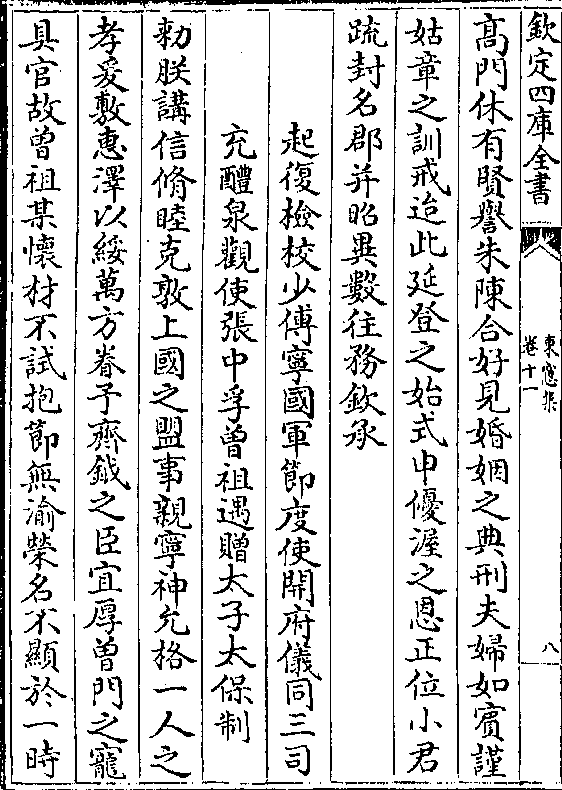 欽定四庫全書
東窻集
卷十一
八
髙門休有賢譽朱陳合好見婚姻之典刑夫婦如賔謹
姑章之訓戒迨此延登之始式申優渥之恩正位小君
疏封名郡并昭異數往務欽承
起復檢校少傅寧國軍節度使開府儀同三司
充醴泉觀使張中孚曾祖遇贈太子太保制
勅朕講信脩睦克敦上國之盟事親寧神允格一人之
孝爰敷惠澤以綏萬方眷予齊鉞之臣宜厚曾門之寵
具官故曾祖某懷材不試抱節無渝榮名不顯於一時